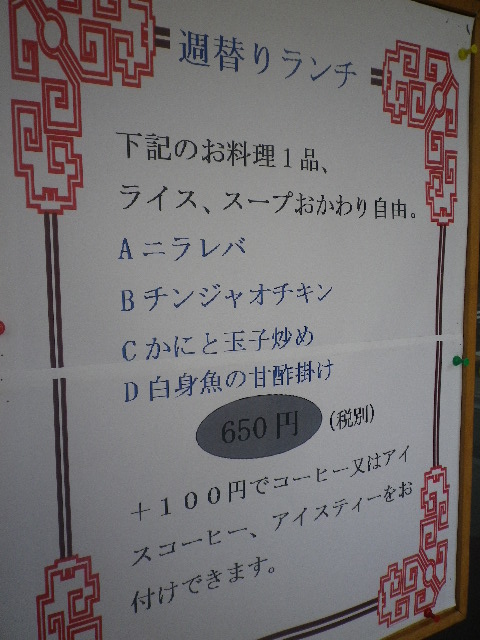 週替りランチ
下記のお料理１品、
ライス、スープおかわり自由。
A ニラレバ
B チンジャオチキン
C かにと玉子炒め
D 白身魚の甘酢掛け
650円 (税別)
＋１００円でコーヒー又はアイ
スコーヒー、アイスティーをお
付けできます。